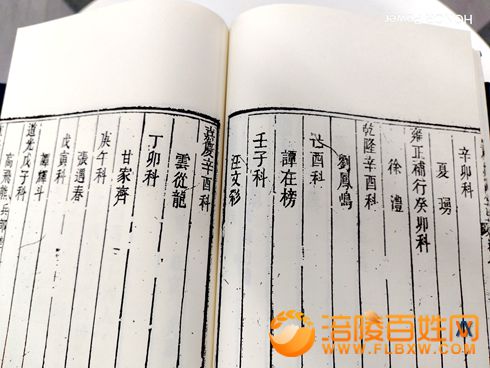 辛卯科
夏瑒
雍正補行癸卯科
徐禮
乾隆辛酉科
劉鳳鳴
己酉科
譚在榜
壬子科
汪文彩
嘉慶辛酉科
雲從龍
丁卯科
甘家齊
庚午科
張遇春
戊寅科
譚輝斗
道光戊子科
高飛熊兵部
涪陵百姓网
WWW.FLBXW.COM